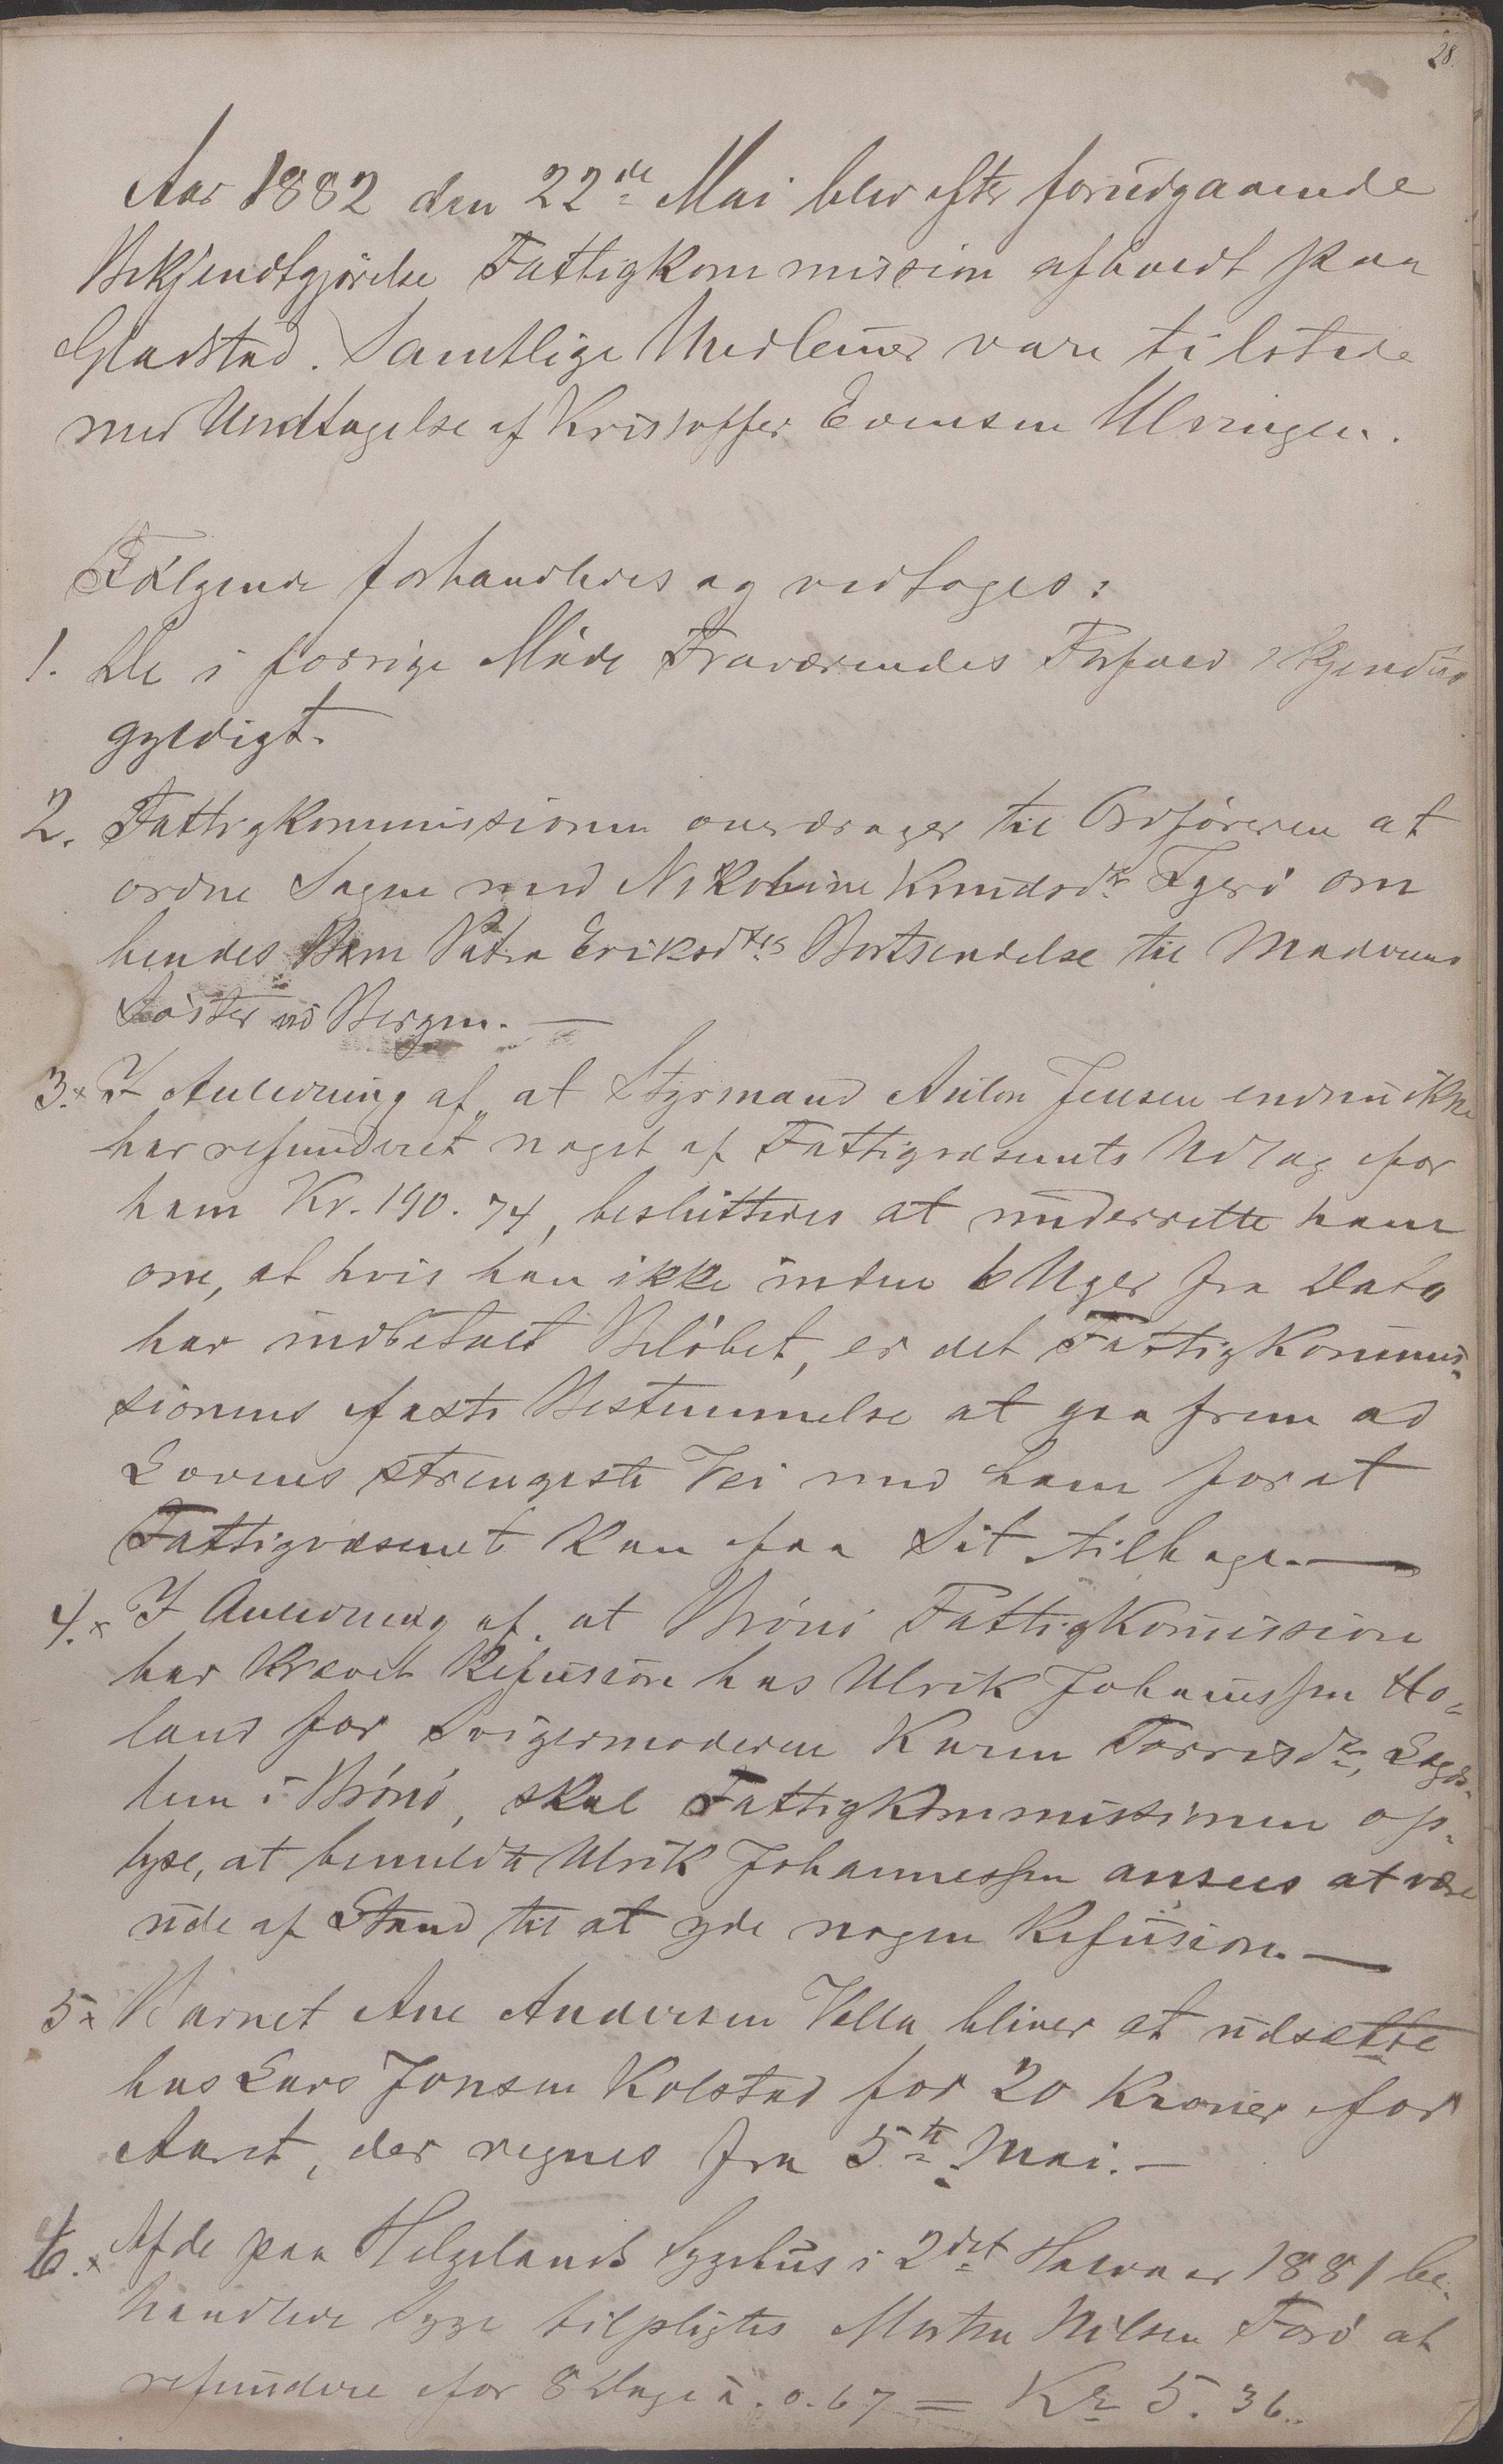 28.
Aar 1882 den 22de Mai blev efter forudgaaende
Bekjendtgjørelse Fattigkommission afholdt paa
Gladstad. Samtlige Medlemer vare tilstede
med Undtagelse af Kristoffer Evensen Ulvingen.
Følgende forhandledes og vedtoges:
1. De i forrige Møde Fraværendes Forfald kjendtes
gyldigt.
2. Fattigkommissionen overdrager til Ordføreren at
ordne Sagen med Nikoline Knudsdtr Igerø om
hendes Barn Petra Eriksdtrs Bortsendelse til Moderens
Søster i Bergen. —
3.x I Anledning af, at Styrmand Anton Jensen endnu ikke
har refunderet noget af Fattigvæsenets Udlæg for
ham Kr. 190.74, besluttedes at underrette ham
om, at hvis han ikke inden 6 Uger fra Dato
har indbetalt Beløbet, er det Fattigkommis-
sionens faste Bestemmelse at gaa frem ad
Lovens strengeste Vei med ham for at
Fattigvæsenet kan faa Sit tilbage. —
4.x I Anledning af, at Brønø Fattigkomission
har krævet Refusion hos Ulrik Johannessen Ho-
land for Svigermoderen Karen Torrisdtr,
i Brønø, skal Fattigkommissionen op-
lyse, at bemeldte Ulrik Johannessen ansees at være
ude af Stand til at yde nogen Refusion. —
5.x Barnet Ane Andersen Vella bliver at udsætte
hos Lars Jonsen Kolstad for 20 Kroner for
Aaret, der regnes fra 5te Mai. —
6.x Af de paa Helgelands Sygehus i 2det Halvaar 1881 be-
handlede Syge tilpligtes Morten Nilsen Forø at
refundere for 8 Dage à 0.67 = Kr 5.36..